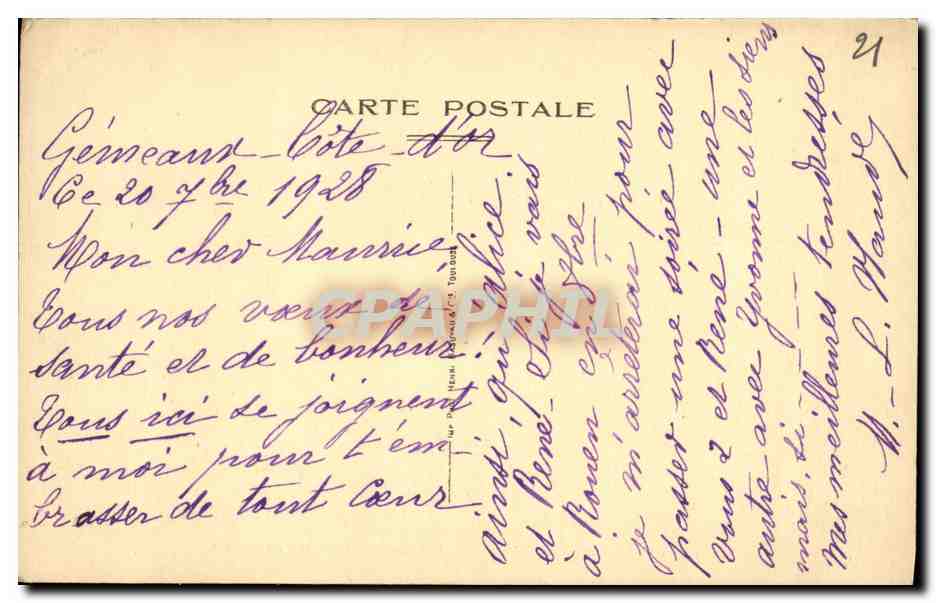 21
CARTE POSTALE
Gémeaux - Côte - d'or
Ce 20 7bre 1928
Mon cher Maurice
Tous nos vœux de
santé et de bonheur!
Tous ici se joignent
à moi pour t'em-
brasser de tout Cœur
ainsi qu'alice
et René - Si je vais
à Rouen en 8bre
je m'arrêterai pour
passer une soirée avec
vous 2 et René - une
autre avec Yvonne et les siens
mais, si -
mes meilleures tendresses
M. - L.
TOULOUSE
CPAPHIL